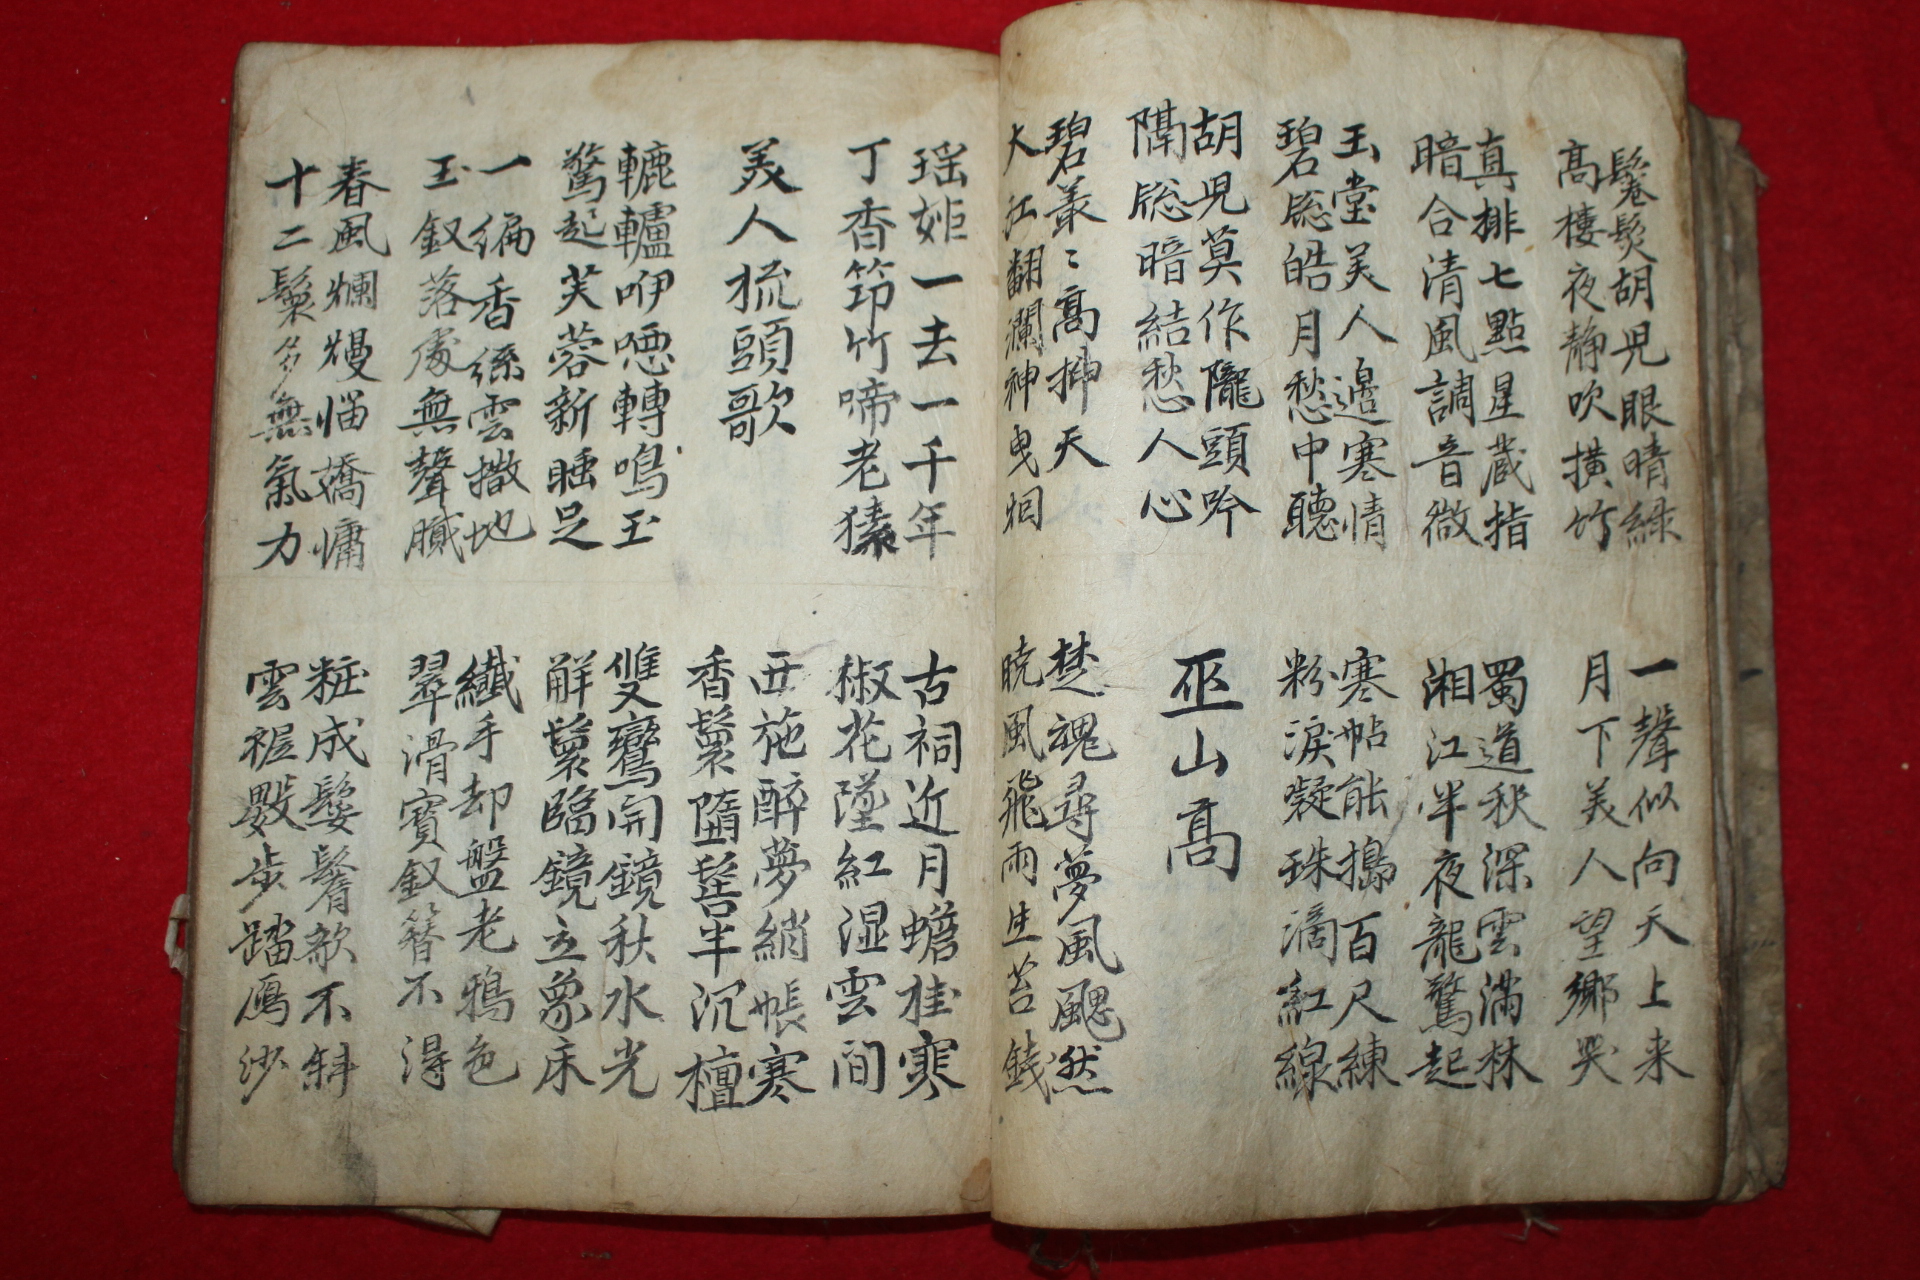 鬈髮胡兒眼睛綠
高樓夜靜吹橫竹
一聲似向天上来
月下美人望鄉哭
真排七點星蔵指
暗合清風調音微
蜀道秋深雲滿林
湘江半夜龍驚起
玉堂美人邊寒情
碧牕皓月愁中聽
寒帖能搗百尺練
粉淚凝珠滴紅線
胡児莫作隴頭吟
隔牕暗結愁人心
巫山高
碧叢〻高挿天
大江翻瀾神曳烟
楚魂尋夢風颸然
暁風飛雨生苔錢
瑶姬一去一千年
丁香筇竹啼老猿
古祠近月蟾桂寒
椒花墜紅湿雲間
美人梳頭歌
西施醉夢綃帳寒
香鬟墮髻半沉檀
轆轤咿啞轉鳴玉
驚起芙蓉新睡足
雙鸞開鏡秋水光
觧鬟臨鏡立象床
一編香絲雲撒地
玉釵落處無聲膩
纖手却盤老鴉色
翠滑寶釵簪不得
春風爛熳惱嬌慵
十二鬟多無氣力
粧成鬟鬌欹不斜
雲裾數步踏鴈沙